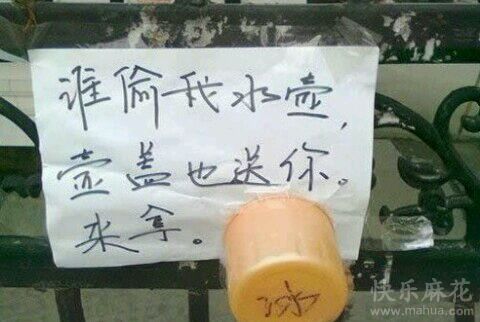 谁偷我水壶,
壶盖也送你。
来拿。
快乐麻花
www.mahua.com